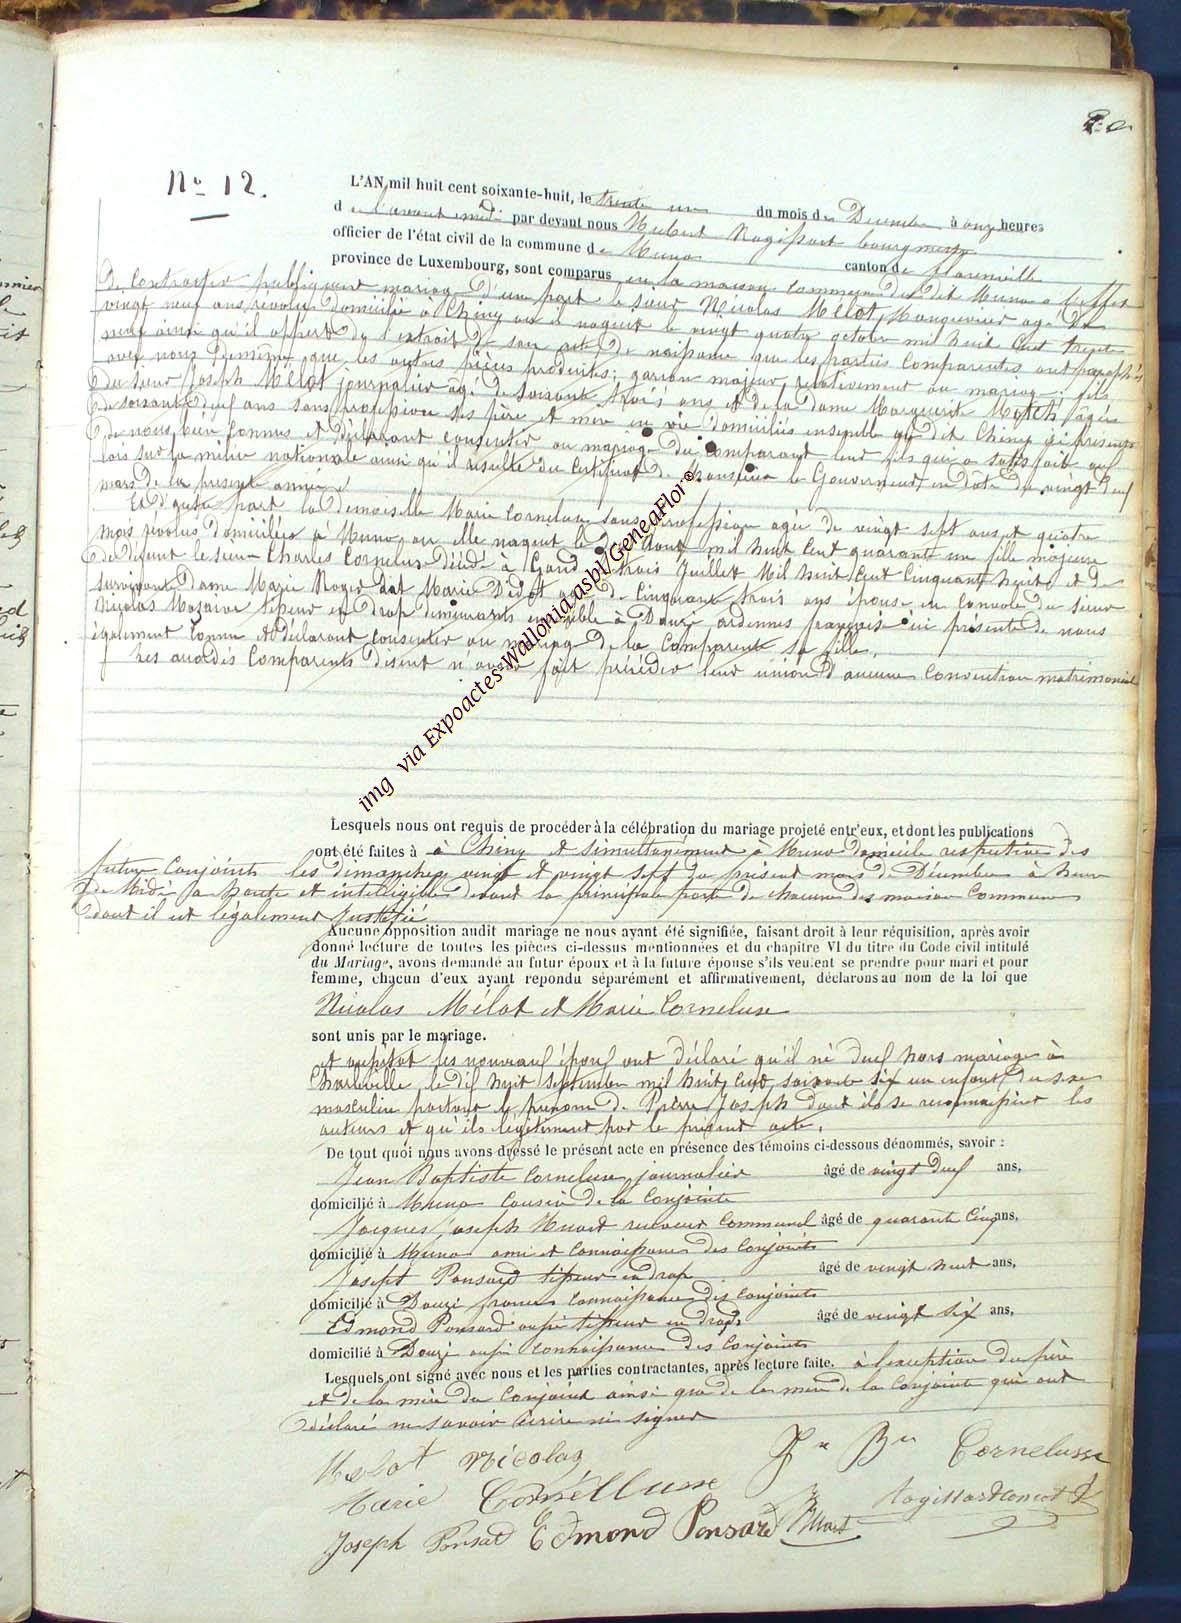 No 12.
L'AN mil huit cent soixante-huit, le trente un du mois de Décembre à onze heures
de l'avant midi par devant nous Hubert Nogissart bourgmestre
officier de l'état civil de la commune de Muno canton de florenville
province de Luxembourg, sont comparus en la maison commune du dit Muno a l'effet
de contracter publiquement mariage d'une part le sieur Nicolas Mélot Manouvrier agé de
vingt neuf ans révolus domicilié à Chiny où il naquit le vingt quatre octobre mil huit Cent trente
neuf ainsi qu'il appert de l'extrait de son acte de naissance que les parties Comparentes ont paraphés
avec nous de même que les autres pièces produites; garçon majeur relativement au mariage; fils
du sieur Joseph Mélot journalier agé de soixante trois ans et de la dame Marguerite agée
de soixante deux ans sans profession ses père et mère en vie domiciliés ensemble au dit Chiny ici présents
de nous bien Connus et déclarant consentir au mariage du comparant leur fils qui a satisfait aux
lois sur la milice nationale ainsi qu'il résulte du Certificat de Monsieur le Gouverneur en date du vingt deux
mars de la présente année
Et d'autre part la demoiselle Marie Corneluse sans profession agée de vingt sept ans et quatre
mois révolus domiciliée à Muno où elle naquit le Aout mil huit Cent quarante un fille majeure
de défunt le sieur Charles Cornelus décédé à Gand le trois Juillet Mil huit Cent Cinquante huit et de
survivante dame Marie Roger dit Marie Didot agée de Cinquante trois ans épouse en Convole du sieur
Nicolas Mazairoe tisseur en drap demeurants ensemble à Douzi ardennes françaises ici présente de nous
également Connu et déclarant consentir au mariage de la Comparente sa fille.
Les susdits Comparents disent n'avoir fait précéder leur union d'aucune Convention matrimonial
img via Expoactes-Wallonia.asbl/GeneaFlor©
Lesquels nous ont requis de procéder à la célébration du mariage projeté entr'eux, et dont les publications
ont été faites à à Chiny et simultanément à Muno domicile respective des
futurs Conjoints les dimanches vingt et vingt sept du présent mois de Décembre à heure
de Midi a haute et intelligible devant la principale porte de chacune des maison Commune
dont il est légalement Justifié
Aucune opposition audit mariage ne nous ayant été signifiée, faisant droit à leur réquisition, après avoir
donné lecture de toutes les pièces ci-dessus mentionnées et du chapitre VI du titre du Code civil intitulé
du Mariage, avons demandé au futur époux et à la future épouse s'ils veulent se prendre pour mari et pour
femme, chacun d'eux ayant repondu séparément et affirmativement, déclarons au nom de la loi que
Nicolas Mélot et Marie Corneluse
sont unis par le mariage.
et aussitot les nouveaux époux ont déclaré qu'il né d'eux hors mariage à
Charleville le dix huit Septembre mil huit cent soixante six un enfant du sexe
masculin portant le prénom de Pierre Joseph dont ils se reconnaissent les
auteurs et qu'ils légitiment par le présent acte.
De tout quoi nous avons dressé le présent acte en présence des témoins ci-dessous dénommés, savoir :
Jean Baptiste Corneluse journalier âgé de vingt deux ans,
domicilié à Muno Cousin de la Conjointe
Jacques Joseph Huart receveur Communal âgé de quarante Cinq ans,
domicilié à Muno ami et Connaissance des Conjoints
Joseph Ponsard tisseur en drap âgé de vingt huit ans,
domicilié à Douzi france Connaissance des Conjoints
Edmond Ponsard aussi tisseur en drap âgé de vingt six ans,
domicilié à Douzi aussi Connaissance des Conjoints
Lesquels ont signé avec nous et les parties contractantes, après lecture faite. à l'exception du père
et de la mère du Conjoint ainsi que de la mère de la Conjointe qui ont
déclaré ne savoir écrire ni signer
Melot Nicolas Jn Bte Cornelusse
Marie Cornéllusse
Joseph Ponsad Edmond Ponsard Huart